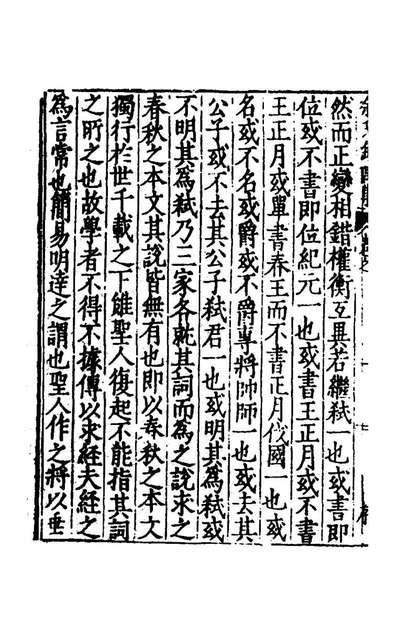 然而正變相錯權衡互異若繼弒一也或書即
位或不書即位紀元一也或書王正月或不書
王正月或單書春王而不書正月伐國一也或
名或不名或爵或不爵專將帥師一也或去其
公子或不去其公子弒君一也或明其為弒或
不明其為弒乃三家各就其詞而為之說求之
春秋之本文其說皆無有也即以春秋之本文
獨行於世千載之下雖聖人復起不能指其詞
之所之也故學者不得不據傳以求經夫經之
為言常也簡易明達之謂也聖人作之將以垂